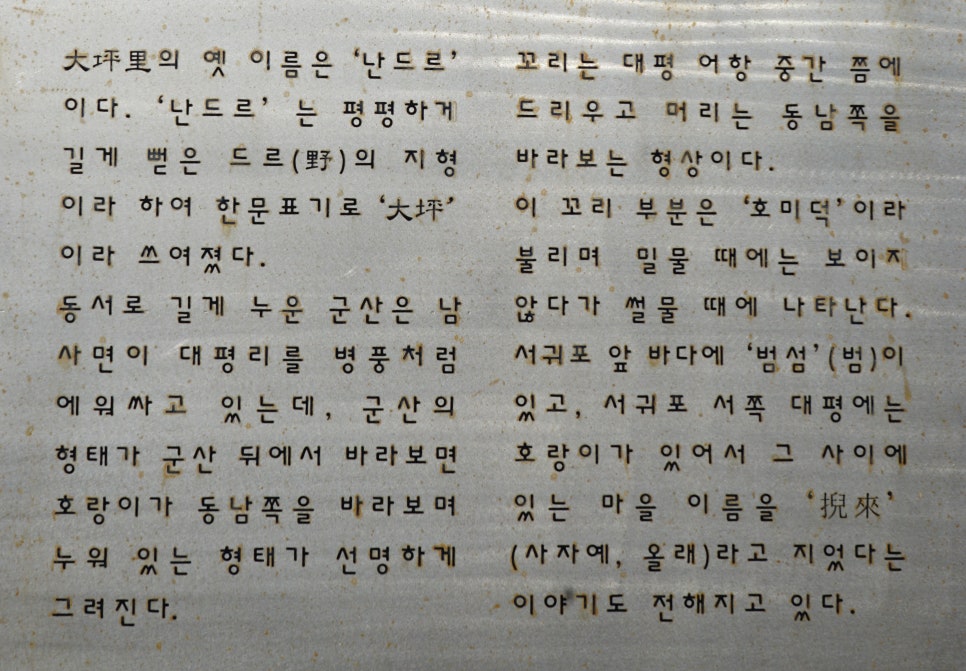 大坪里의 옛 이름은 ‘난드르’
이다. ‘난드르’ 는 평평하게
길게 뻗은 드르(野)의 지형
이라 하여 한문표기로 ‘大坪’
이라 쓰여졌다.
동서로 길게 누운 군산은 남
사면이 대평리를 병풍처럼
에워싸고 있는데, 군산의
형태가 군산 뒤에서 바라보면
호랑이가 동남쪽을 바라보며
누워 있는 형태가 선명하게
그려진다.
꼬리는 대평 어항 중간 쯤에
드리우고 머리는 동남쪽을
바라보는 형상이다.
이 꼬리 부분은 ‘호미덕’이라
불리며 밀물 때에는 보이지
않다가 썰물 때에 나타난다.
서귀포 앞 바다에 ‘범섬’(범)이
있고, 서귀포 서쪽 대평에는
호랑이가 있어서 그 사이에
있는 마을 이름을 ‘掜來’
(사자예, 올래)라고 지었다는
이야기도 전해지고 있다.